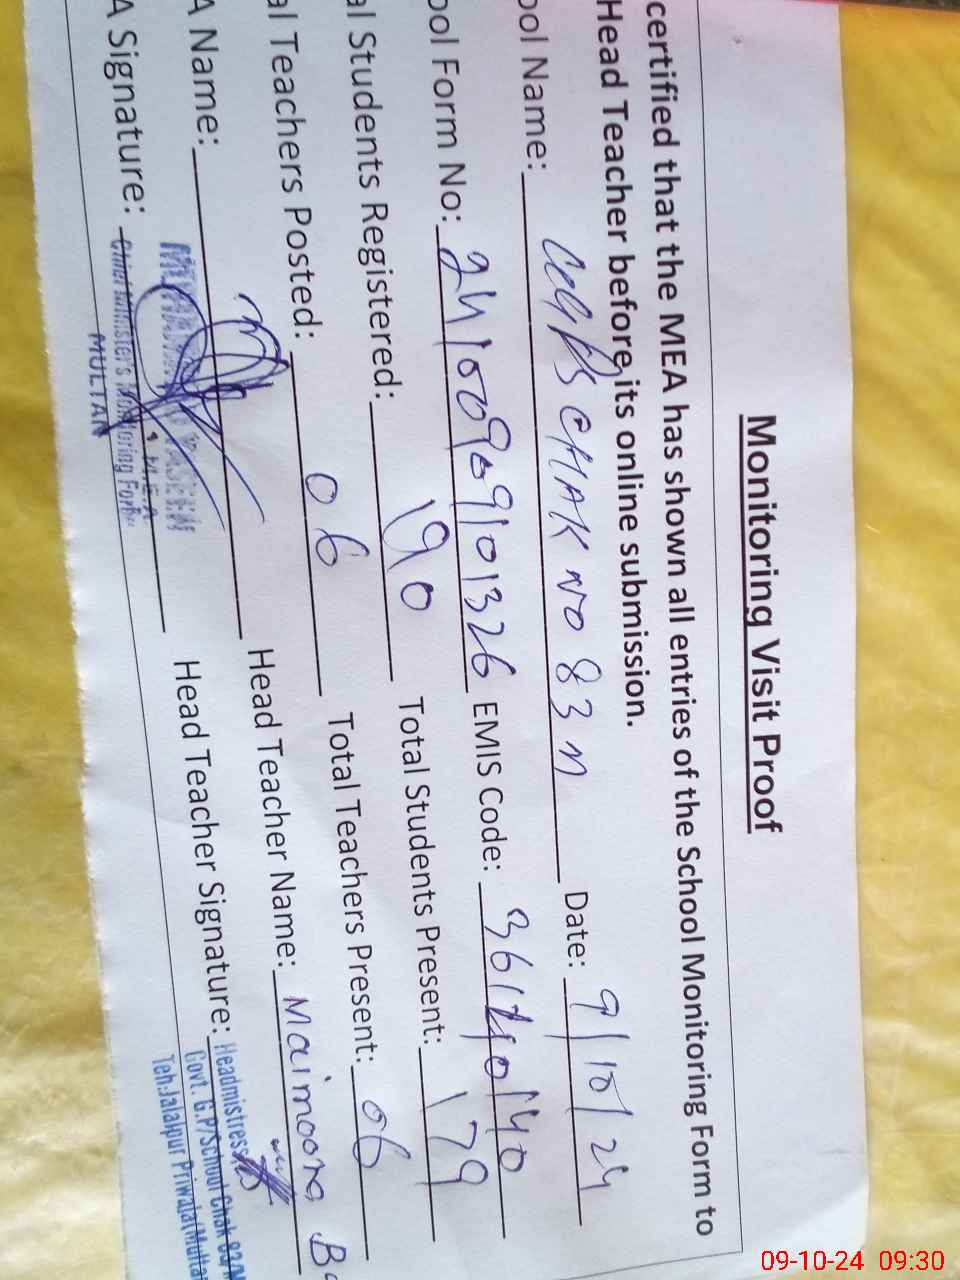 Monitoring Visit Proof
certified that the MEA has shown all entries of the School Monitoring Form to
Head Teacher before its online submission.
ool Name: GGPS CHAK NO 83 M Date: 9/10/24
ool Form No: 24100909101326 EMIS Code: 36140
al Students Registered: 190 Total Students Present: 179
al Teachers Posted: 06 Total Teachers Present: 06
A Name: Head Teacher Name: Maimoona
A Signature: Head Teacher Signature:
M.E.A.
Chief Minister's Monitoring Force
MULTAN
Headmistress
Govt. G.P/School Chak 83/M
Teh:Jalalpur Pirwala(Multa
09-10-24 09:30